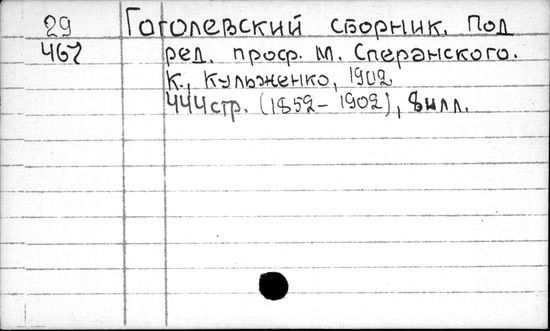 29 Гоголевский сборник. Под
467 ред. проф. М. Сперанского.
К., Кульженко, 1902
444 стр. (1852-1902), 8 илл.